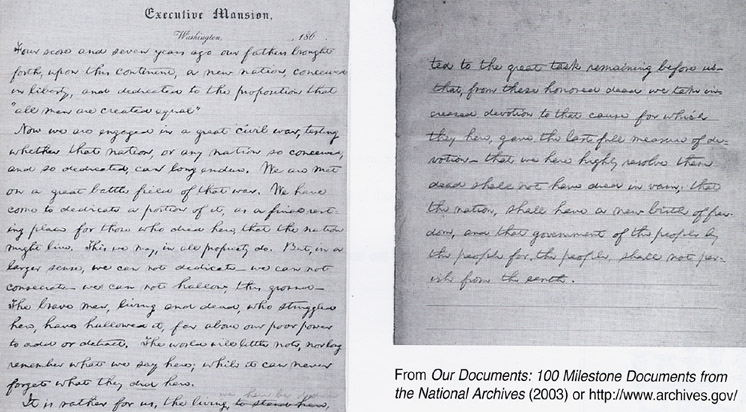 Executive Mansion,
Washington, , 186 .
Four score and seven years ago our fathers brought
forth, upon this continent, a new nation, conceived
in liberty, and dedicated to the proposition that
"all men are created equal"
Now we are engaged in a great civil war, testing
whether that nation, or any nation so conceived,
and so dedicated, can long endure. We are met
on a great battle field of that war. We have
come to dedicate a portion of it, as a final rest-
ing place for those who died here, that the nation
might live. This we may, in all propriety do. But, in a
larger sense, we can not dedicate — we can not
consecrate — we can not hallow, this ground —
The brave men, living and dead, who struggled
here, have hallowed it, far above our poor power
to add or detract. The world will little note, nor long
remember what we say here; while it can never
forget what they did here.
It is rather for us, the living, to stand here,
ted to the great task remaining before us —
that, from these honored dead we take in-
creased devotion to that cause for which
they here, gave the last full measure of de-
votion — that we here highly resolve these
dead shall not have died in vain; that
the nation, shall have a new birth of free-
dom, and that government of the people by
the people for the people, shall not per-
ish from the earth.
From Our Documents: 100 Milestone Documents from
the National Archives (2003) or http://www.archives.gov/